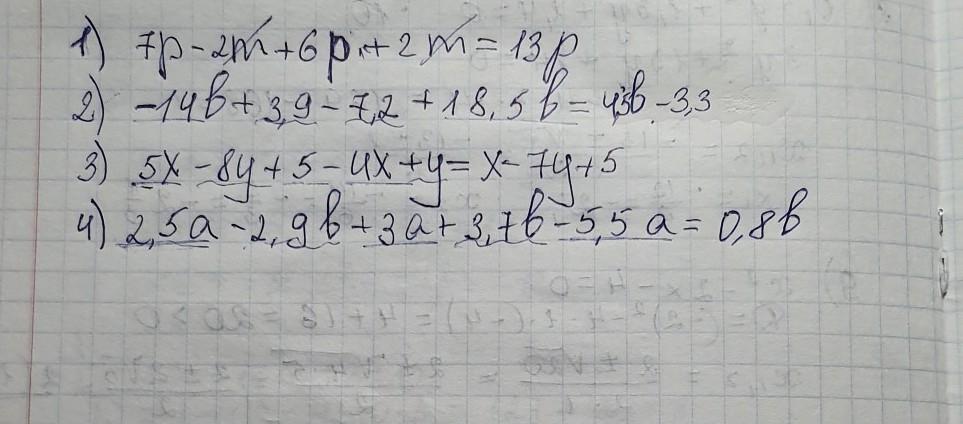 1) 7p - 2m + 6p + 2m = 13p
2) -14b + 3,9 - 7,2 + 18,5b = 4,5b - 3,3
3) 5x - 8y + 5 - 4x + y = x - 7y + 5
4) 2,5a - 2,9b + 3a + 3,7b - 5,5a = 0,8b